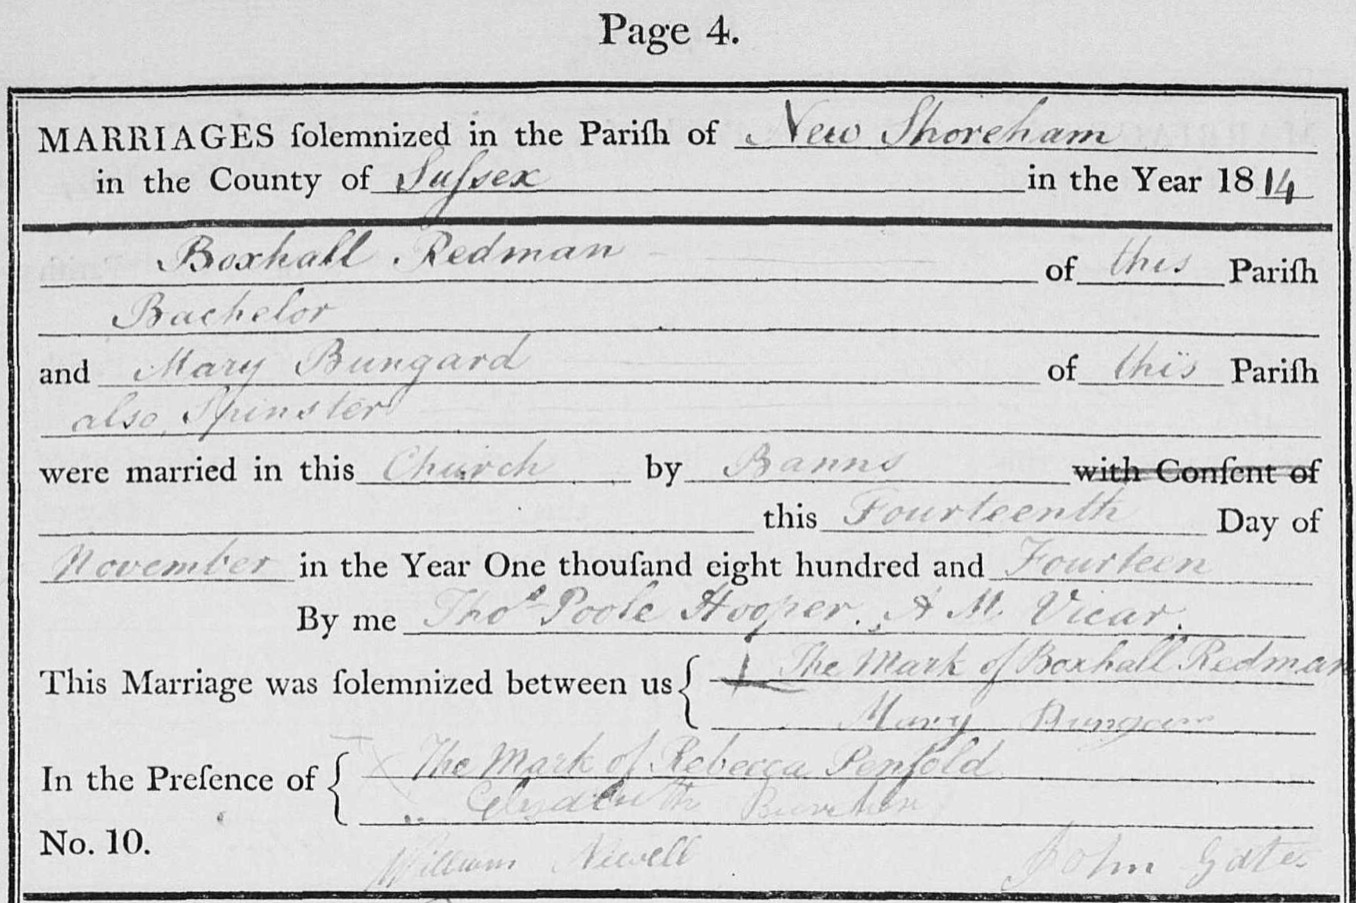 Page 4.
MARRIAGES ſolemnized in the Pariſh of New Shoreham
in the County of Suſsex in the Year 1814
Boxhall Redman of this Pariſh
Bachelor
and Mary Bungard of this Pariſh
also Spinster
were married in this Church by Banns with Conſent of
this Fourteenth Day of
November in the Year One thouſand eight hundred and Fourteen
By me Thos Poole Hooper. A M. Vicar.
This Marriage was ſolemnized between us { The Mark of Boxhall Redman
Mary
In the Preſence of { The Mark of Rebecca Penfold
No. 10.
William Newell John Gates